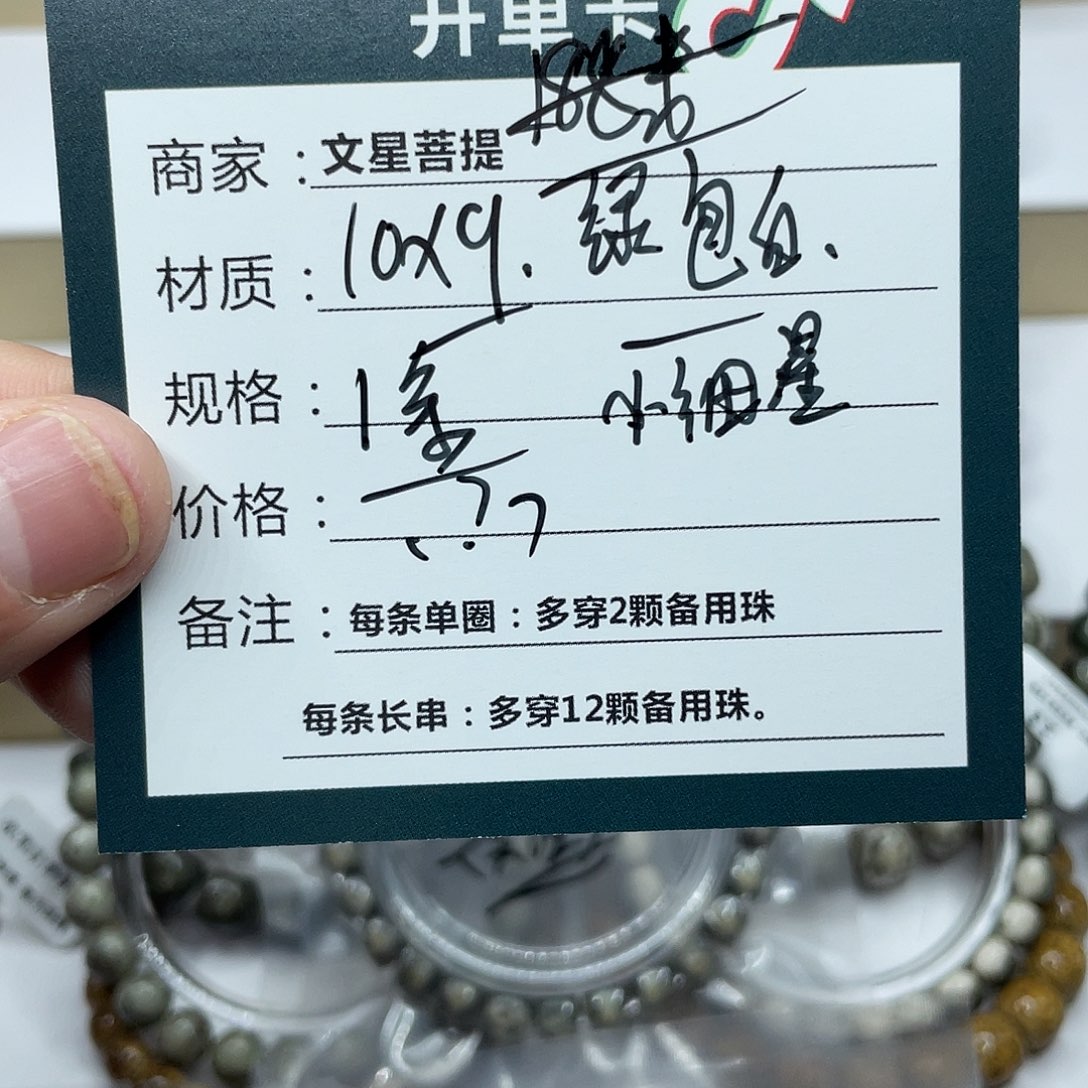 开单卡
商家：文星菩提
材质：10x9. 绿包白.
规格：1条 小细星
价格：
备注：每条单圈：多穿2颗备用珠
每条长串：多穿12颗备用珠。